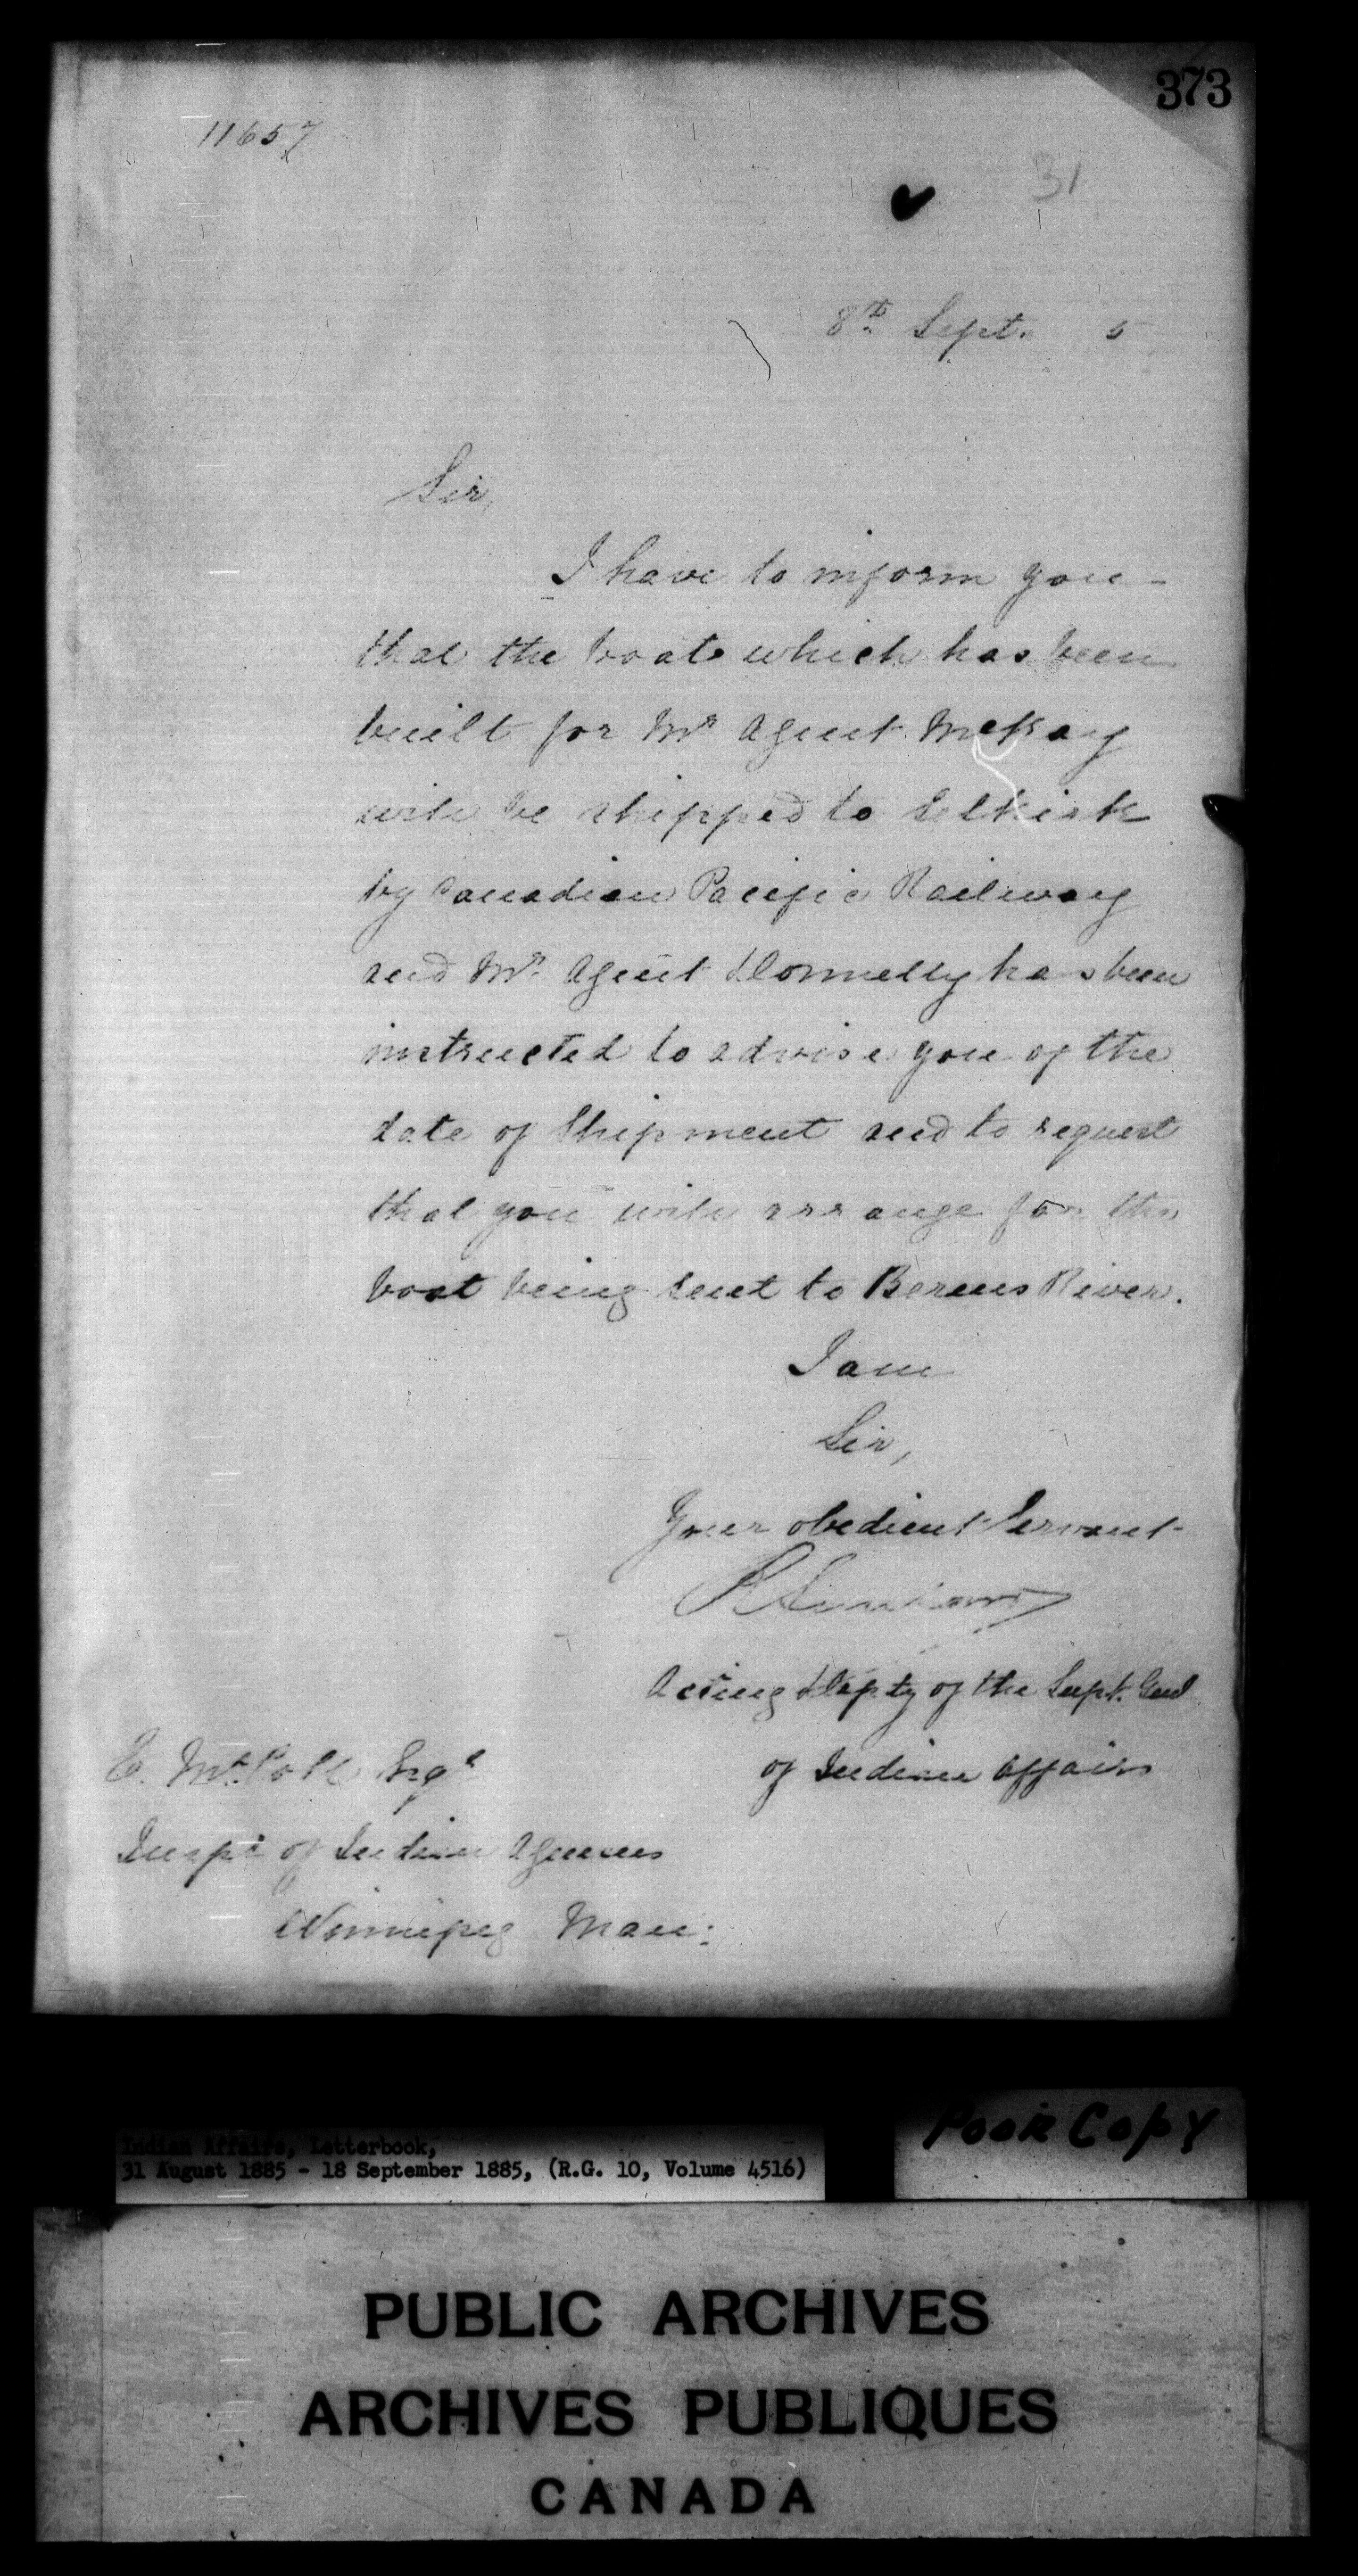 373
11657
31
8th Sept. 5
Sir,
I have to inform you
that the boat which has been
built for Mr Agent McKay
will be shipped to Selkirk
by Canadian Pacific Railway
and Mr. Agent Donnelly has been
instructed to advise you of the
date of Shipment and to request
that you will arrange for the
boat being sent to Berens River.
I am
Sir,
Your obedient Servant
Acting Depty of the Supt. Genl
of Indian Affairs
E. McColl Esqr
Inspr of Indian Agencies
Winnipeg Man:
Poor Copy
Indian Affairs, Letterbook,
31 August 1885 - 18 September 1885, (R.G. 10, Volume 4516)
PUBLIC ARCHIVES
ARCHIVES PUBLIQUES
CANADA